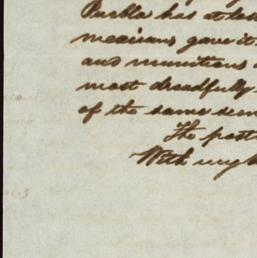 Puebla has at las
mexicans gave it
and munitions
most dreadfully
of the same
The post
With my